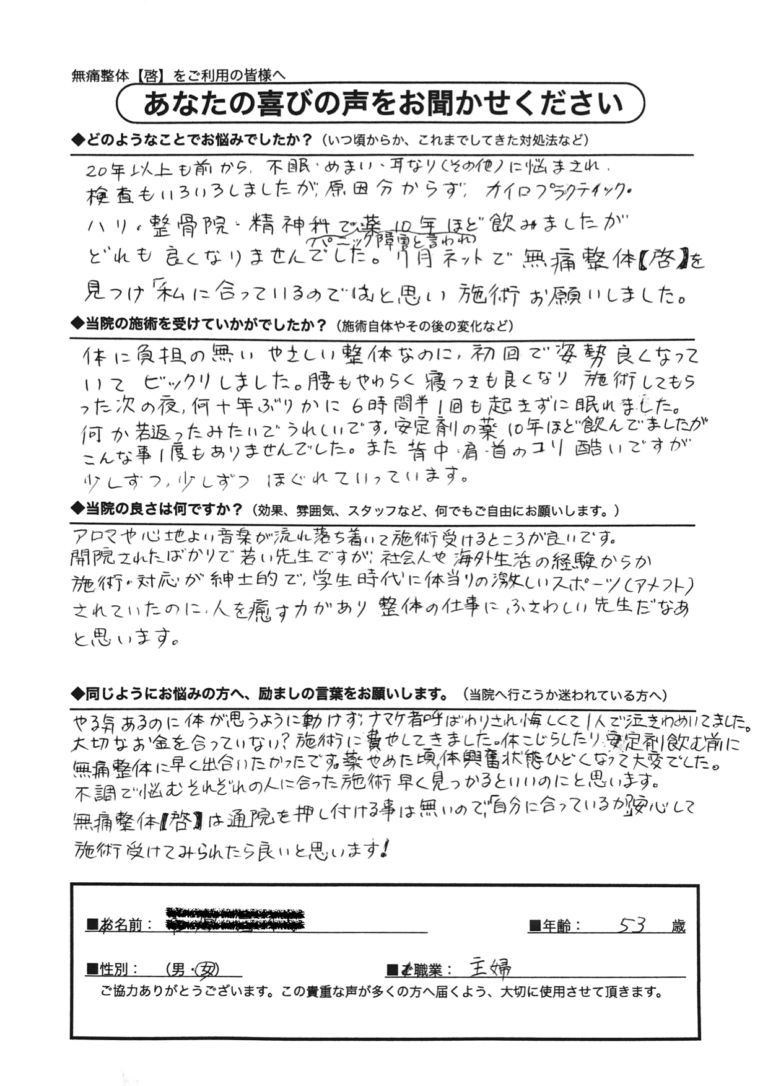 無痛整体【啓】をご利用の皆様へ
あなたの喜びの声をお聞かせください
◆どのようなことでお悩みでしたか？（いつ頃からか、これまでしてきた対処法など）
20年以上も前から、不眠・めまい・耳なり（その他）に悩まされ、
検査もいろいろしましたが、原因分からず、カイロプラクティック・
ハリ・整骨院・精神科で薬10年ほど飲みましたが
（パニック障害と言われ）
どれも良くなりませんでした。 月ネットで無痛整体【啓】を
見つけ「私に合っているのでは」と思い施術お願いしました。
◆当院の施術を受けていかがでしたか？（施術自体やその後の変化など）
体に負担の無いやさしい整体なのに、初回で姿勢良くなって
いてビックリしました。腰もやわらく寝つきも良くなり施術してもら
った次の夜、何十年ぶりかに6時間半1回も起きずに眠れました。
何か若返ったみたいでうれしいです。安定剤の薬10年ほど飲んでましたが
こんな事1度もありませんでした。また背中・肩・首のコリ酷いですが
少しずつ、少しずつほぐれていっています。
◆当院の良さは何ですか？（効果、雰囲気、スタッフなど、何でもご自由にお願いします。）
アロマや心地よい音楽が流れ落ち着いて施術受けるところが良いです。
開院されたばかりで若い先生ですが、社会人や海外生活の経験からか
施術・対応が紳士的で、学生時代に体当りの激しいスポーツ（アメフト）
されていたのに、人を癒す力があり整体の仕事にふさわしい先生だなあ
と思います。
◆同じようにお悩みの方へ、励ましの言葉をお願いします。（当院へ行こうか迷われている方へ）
やる気あるのに体が思うように動けず、ナマケ者呼ばわりされ悔しくて1人で泣きわめいてました。
大切なお金を合っていない？施術に費やしてきました。体こじらしたり、安定剤飲む前に
無痛整体に早く出合いたかったです。薬やめた頃、体興奮状態ひどくなって大変でした。
不調で悩むそれぞれの人に合った施術早く見つかるといいのにと思います。
無痛整体【啓】は通院を押し付ける事は無いので、「自分に合っているか」安心して
施術受けてみられたら良いと思います！
■お名前：
■年齢： 53 歳
■性別：（男・女）
■ご職業： 主婦
ご協力ありがとうございます。この貴重な声が多くの方へ届くよう、大切に使用させて頂きます。